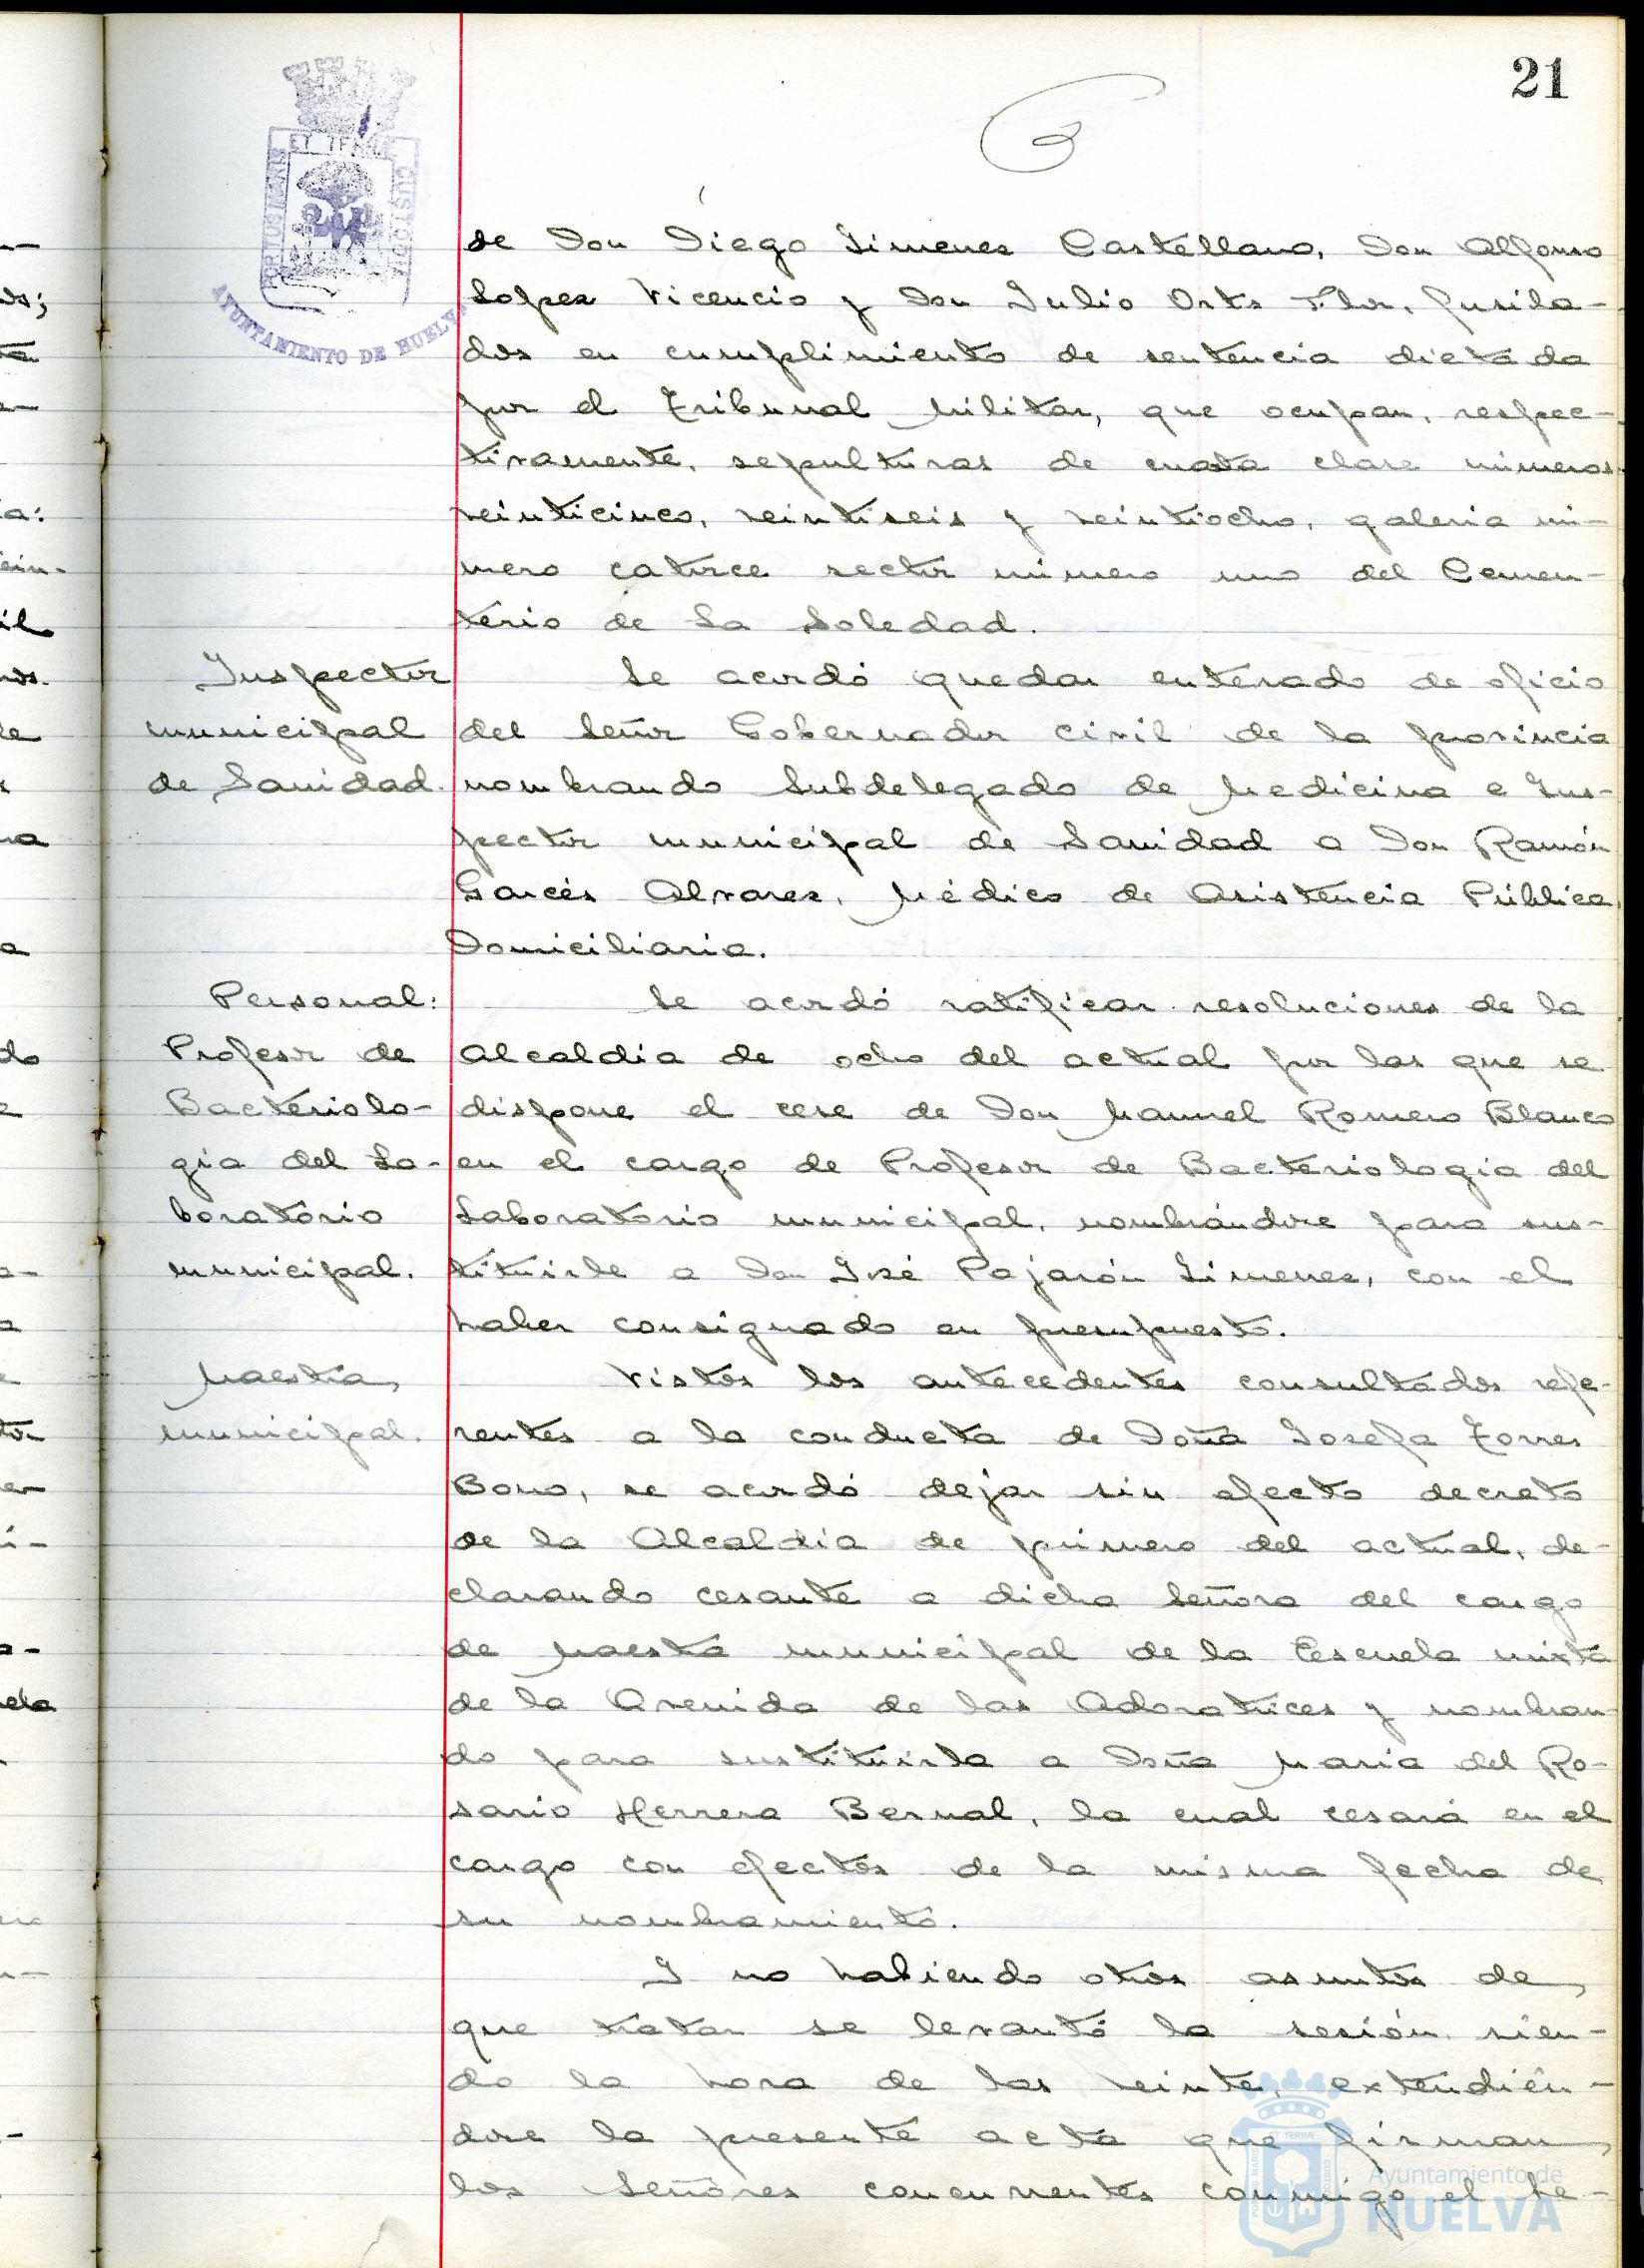 21
PORTUS MARIS ET TERRAE CUSTODIA
AYUNTAMIENTO DE HUELVA
de Don Diego Jimenez Castellano, Don Alfonso
Lopez Vicencio y Don Julio Orts Flor, fusila-
dos en cumplimiento de sentencia dictada
por el Tribunal Militar, que ocupan, respec-
tivamente, sepulturas de cuarta clase números
veinticinco, veintiseis y veintiocho, galeria nú-
mero catorce sector número uno del Cemen-
terio de La Soledad.
Inspector
municipal
de Sanidad.
Se acordó quedar enterado de oficio
del Señor Gobernador Civil de la provincia
nombrando Subdelegado de Medicina e Ins-
pector municipal de Sanidad a Don Ramón
Garcés Alvarez, Médico de Asistencia Pública
Domiciliaria.
Personal:
Profesor de
Bacteriolo-
gía del La-
boratorio
municipal.
Se acordó ratificar resoluciones de la
Alcaldía de ocho del actual por las que se
dispone el cese de Don Manuel Romero Blanco
en el cargo de Profesor de Bacteriología del
Laboratorio municipal, nombrándose para sus-
tituirle a Don José Pajarón Jimenez, con el
haber consignado en presupuesto.
Maestra
municipal.
Vistos los antecedentes consultados refe-
rentes a la conducta de Doña Josefa Torres
Bono, se acordó dejar sin efecto decreto
de la Alcaldía de primero del actual, de-
clarando cesante a dicha Señora del cargo
de Maestra municipal de la Escuela mixta
de la Avenida de las Adoratrices y nombran-
do para sustituirla a Doña Maria del Ro-
sario Herrera Bernal, la cual cesará en el
cargo con efectos de la misma fecha de
su nombramiento.
Y no habiendo otros asuntos de
que tratar se levantó la sesión, sien-
do la hora de las veinte, extendién-
dose la presente acta que firman
los Señores concurrentes conmigo el Se-
Ayuntamiento de
HUELVA